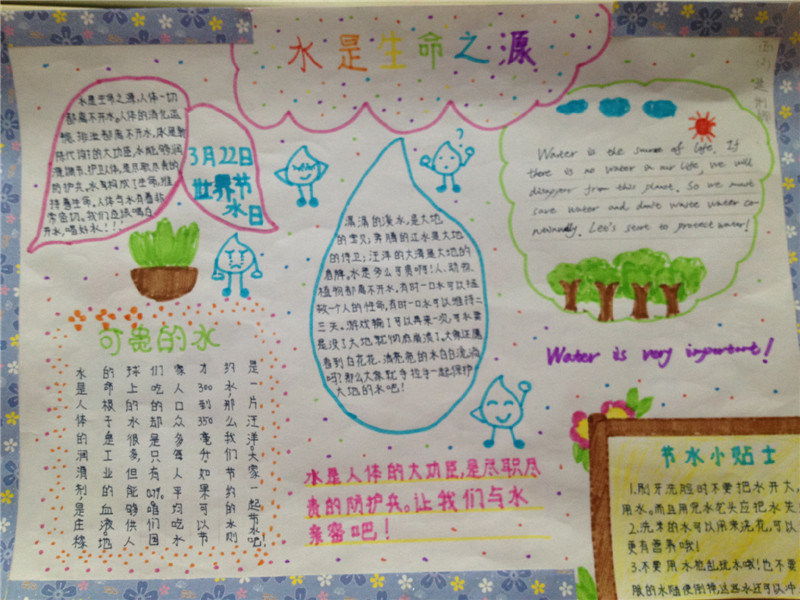 水是生命之源
水是生命之源。人体一切
都离不开水。人体的消化温
都离不开水。水是新
陈代谢的大功臣,水能够润
滑调节、护卫体,是尽职尽责的
防护兵。水构成了生命,维
持着生命。人体与水有着非
常密切。我们应该喝白
开水,喝好水!!
3月22日
世界节
水日
?
Water is the source of life. If
there is no water in our life, we will
disappear from this planet. So we must
save water and don't waste water con-
tinually. Let's start to protect water!
Water is very important!
潺潺的溪水,是大地
的宝贝;奔腾的江水是大地
的侍卫;汪洋的大海是大地的
肩牌。水是多么可贵啊!人、动物、
植物都离不开水。有时一口水可以拯
救一个人的性命,有时一口水可以维持二
三天。游戏输了可以再来一次,可水要
是没了大地就彻底崩溃了。大家还愿
看到白花花、清亮亮的水白白流淌
吗?那么大家就手拉手一起保护
大地的水吧!
可贵的水
是一片汪洋,大家一起节水吧!
约水,那么我们节约的水则
才300到350毫升如果可以节
像人口众多每人平均吃水
们吃的却是只有0.1%咱们国
球上的水很多但能够供人
的命根子是工业的血液。地
水是人体的润滑剂是庄稼
水是人体的大功臣,是尽职尽
责的防护兵。让我们与水
亲密吧!
节水小贴士
1.刷牙洗脸时不要把水开大,
用水。而且用完水龙头应把水关
2.洗米的水可以用来浇花,可以
更有营养哦!
3.不要用水枪乱玩水哦!也不要
的水随便倒掉,这些水还可以冲